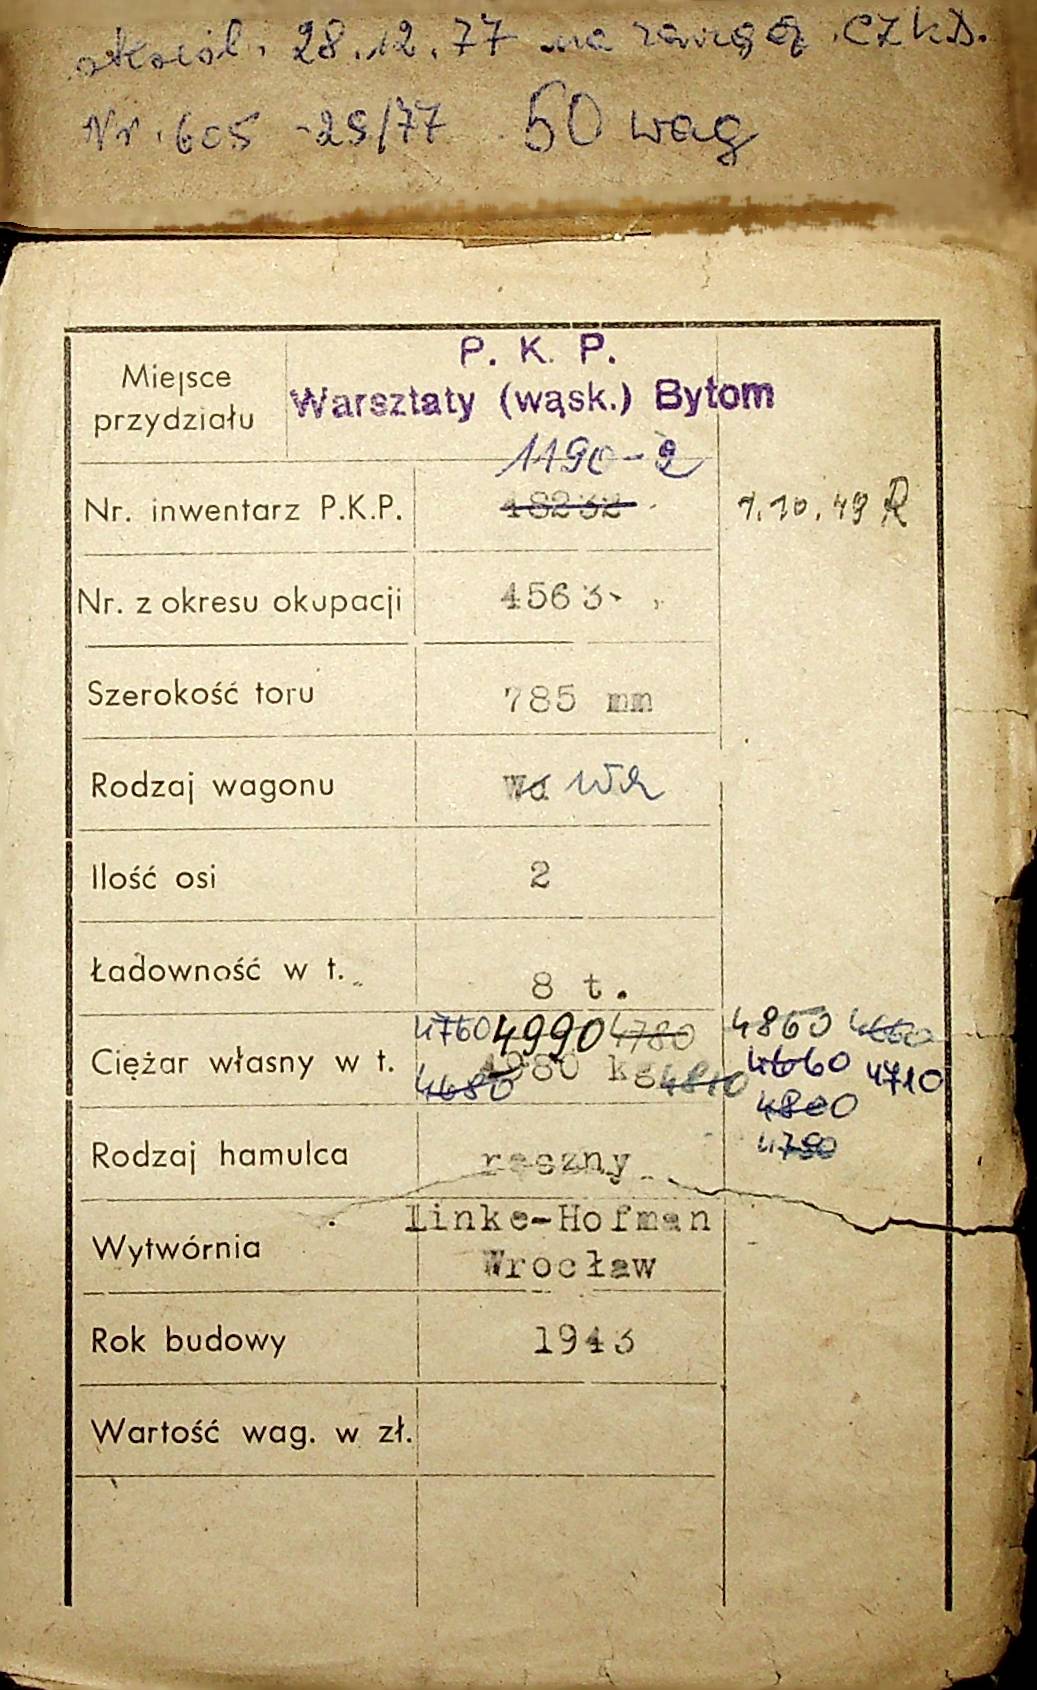 28.12.77 na
Nr. 605 -29/77 50 wag
P. K. P.
Miejsce
przydziału
Warsztaty (wąsk.) Bytom
1190-2
Nr. inwentarz P.K.P. 18232 1.10.49 R
Nr. z okresu okupacji 4563
Szerokość toru 785 mm
Rodzaj wagonu Wd
Ilość osi 2
Ładowność w t. 8 t.
4760 4990 4780 4860
Ciężar własny w t. 4980 kg 4810 4660 4710
4680 4800
Rodzaj hamulca ręczny
Linke-Hofman
Wytwórnia
Wrocław
Rok budowy 1943
Wartość wag. w zł.